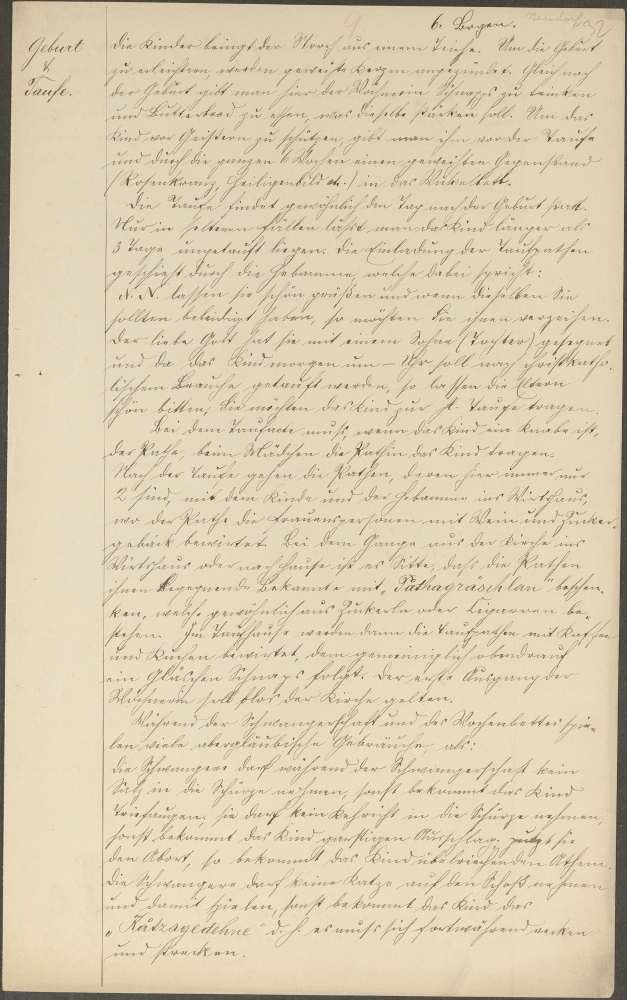 6. Bogen.
Geburt
&
Taufe.
Die Kinder bringt der Storch aus einem Teiche. Um die Geburt
zu erleichtern werden geweihte Kerzen angezündet. Gleich nach
der Geburt gibt man hier der Wöchnerin Schnapps zu trinken
und Butterbrod zu essen, was dieselbe stärken soll. Um das
Kind vor Geistern zu schützen, gibt man ihm vor der Taufe
und durch die ganzen 6 Wochen einen geweihten Gegenstand
(Rosenkranz, Heiligenbild etc.) in das Wickelbett.
Die Taufe findet gewöhnlich den Tag nach der Geburt statt.
Nur in seltenen Fällen läßt man das Kind länger als
3 Tage ungetauft liegen. Die Einladung der Taufpathen
geschieht durch die Hebamme, welche dabei spricht:
N. N. lassen sie schön grüßen und wenn dieselben Sie
sollten beleidigt haben, so möchten Sie ihnen verzeihen.
Der liebe Gott hat sie mit einem Sohne (Tochter) gesegnet
und da das Kind morgen um – Uhr soll nach christkatho-
lischem Brauche getauft werden, so lassen die Eltern
schön bitten, Sie möchten das Kind zur hl. Taufe tragen.
Bei dem Taufacte muß, wenn das Kind ein Knabe ist,
der Pathe, beim Mädchen die Pathin das Kind tragen.
Nach der Taufe gehen die Pathen, deren hier immer nur
2 sind, mit dem Kinde und der Hebamme ins Wirtshaus,
wo der Pathe die Frauenspersonen mit Wein und Zucker-
gebäck bewirtet. Bei dem Gange aus der Kirche ins
Wirtshaus oder nach Hause ist es Sitte, daß die Pathen
ihnen begegnende Bekannte mit „Pathagräschlan" beschen-
ken, welche gewöhnlich aus Zuckerln oder Cigarren be-
stehen. Im Taufhause werden dann die Taufpathen mit Kaffee
und Kuchen bewirtet, dem gemeiniglich obendrauf
ein Gläschen Schnaps folgt. Der erste Ausgang der
Wöchnerin soll blos der Kirche gelten.
Während der Schwangerschaft und des Wochenbettes spie-
len viele abergläubische Gebräuche, als:
die Schwangere darf während der Schwangerschaft kein
Salz in die Schürze nehmen, sonst bekommt das Kind
Triefaugen; sie darf kein Kehricht in die Schürze nehmen,
sonst bekommt das Kind garstigen Ausschlag. putzt sie
den Abort, so bekommt das Kind übelriechenden Athem.
Die Schwangere darf keine Katze auf den Schoß nehmen
und damit spielen, sonst bekommt das Kind das
„Kåtzagedehne" d. h. es muß sich fortwährend recken
und strecken.